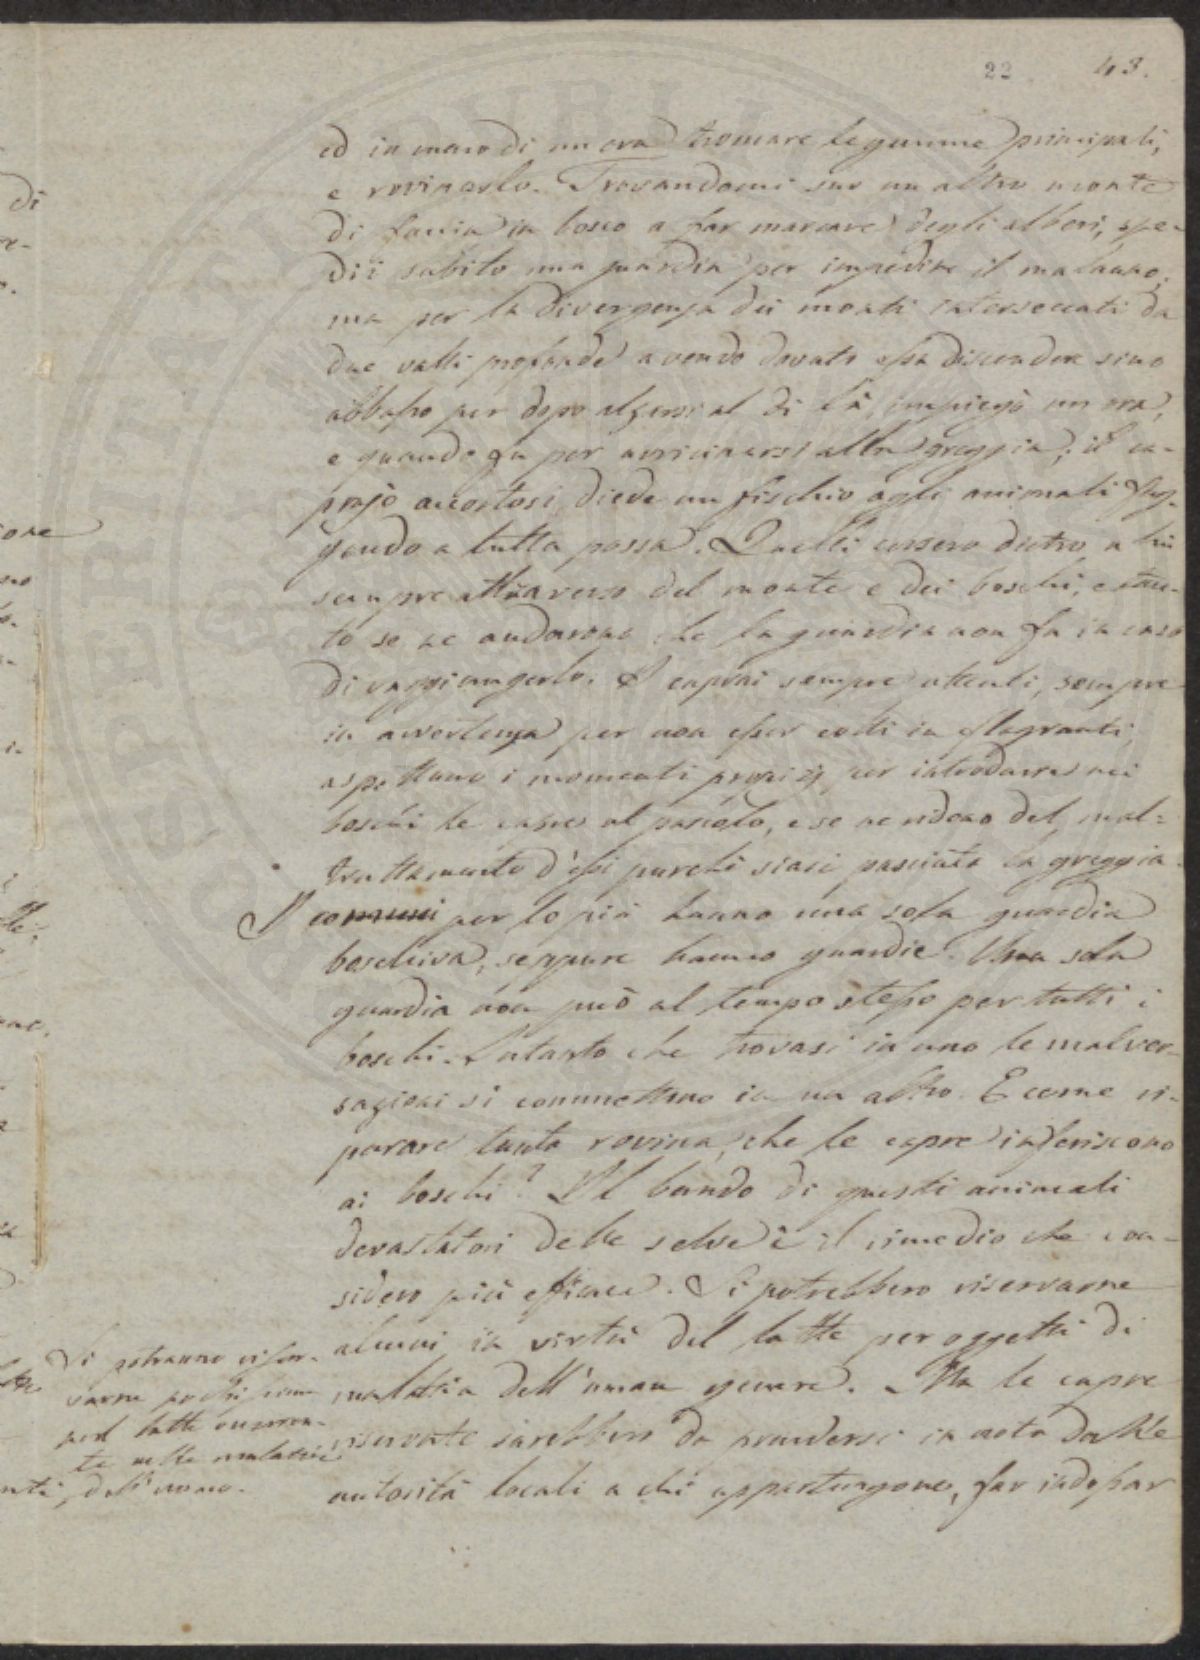 22 43.
ed in meno di un ora troncare le gumme principali,
e rovinarlo. Trovandomi suo un altro monte
di faccia in bosco a far marcare degli alberi, spe-
dii subito una guardia per impedire il malanno,
ma per la divergenza dei monti intersecati da
due valli profonde avendo dovuto essa discendere sino
abbasso per dopo alzarsi al di là, impiegò un ora,
e quando fu per avvicinarsi alla greggia, il ca-
prajo accortosi, diede un fischio agli animali fug-
gendo a tutta possa. Quelli corsero dietro a lui
sempre attraverso del monte e dei boschi, e tan-
to se ne andarono che la guardia non fu in caso
di raggiungerlo. I caprai sempre attenti, sempre
in avvertenza per non esser colti in flagranti,
aspettano i momenti propizj per introdurre nei
boschi le capre al pascolo, e se ne ridono del mal=
trattamento d'essi purchè siasi pasciuta la greggia.
I comuni per lo più hanno una sola guardia
boschiva, seppure hanno guardie. Una sola
guardia non può al tempo stesso per tutti i
boschi. Intanto che trovasi in uno le malver-
sazioni si commettono in un altro. E come ri-
parare tanta rovina, che le capre inferiscono
ai boschi? Il bando di questi animali
devastatori delle selve è il rimedio che con-
sidero più efficace. Si potrebbero riservarne
alcuni in virtù del latte per oggetti di
malatia dell'uman genere. Ma le capre
riservate sarebbero da prendersi in nota dalle
autorità locali a chi appartengono, far indossar
Si potranno riser-
varne
pel latte
te nelle malattie
dell'uomo.